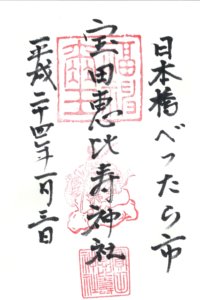 日本橋べったら市
宝田恵比寿神社
平成二十四年一月三日